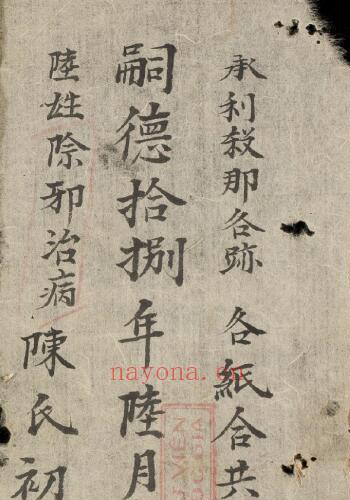 承利殺那各跡 各紙合共
嗣德拾捌年陸月
陸姓除邪治病 陳氏初
nayona.cn